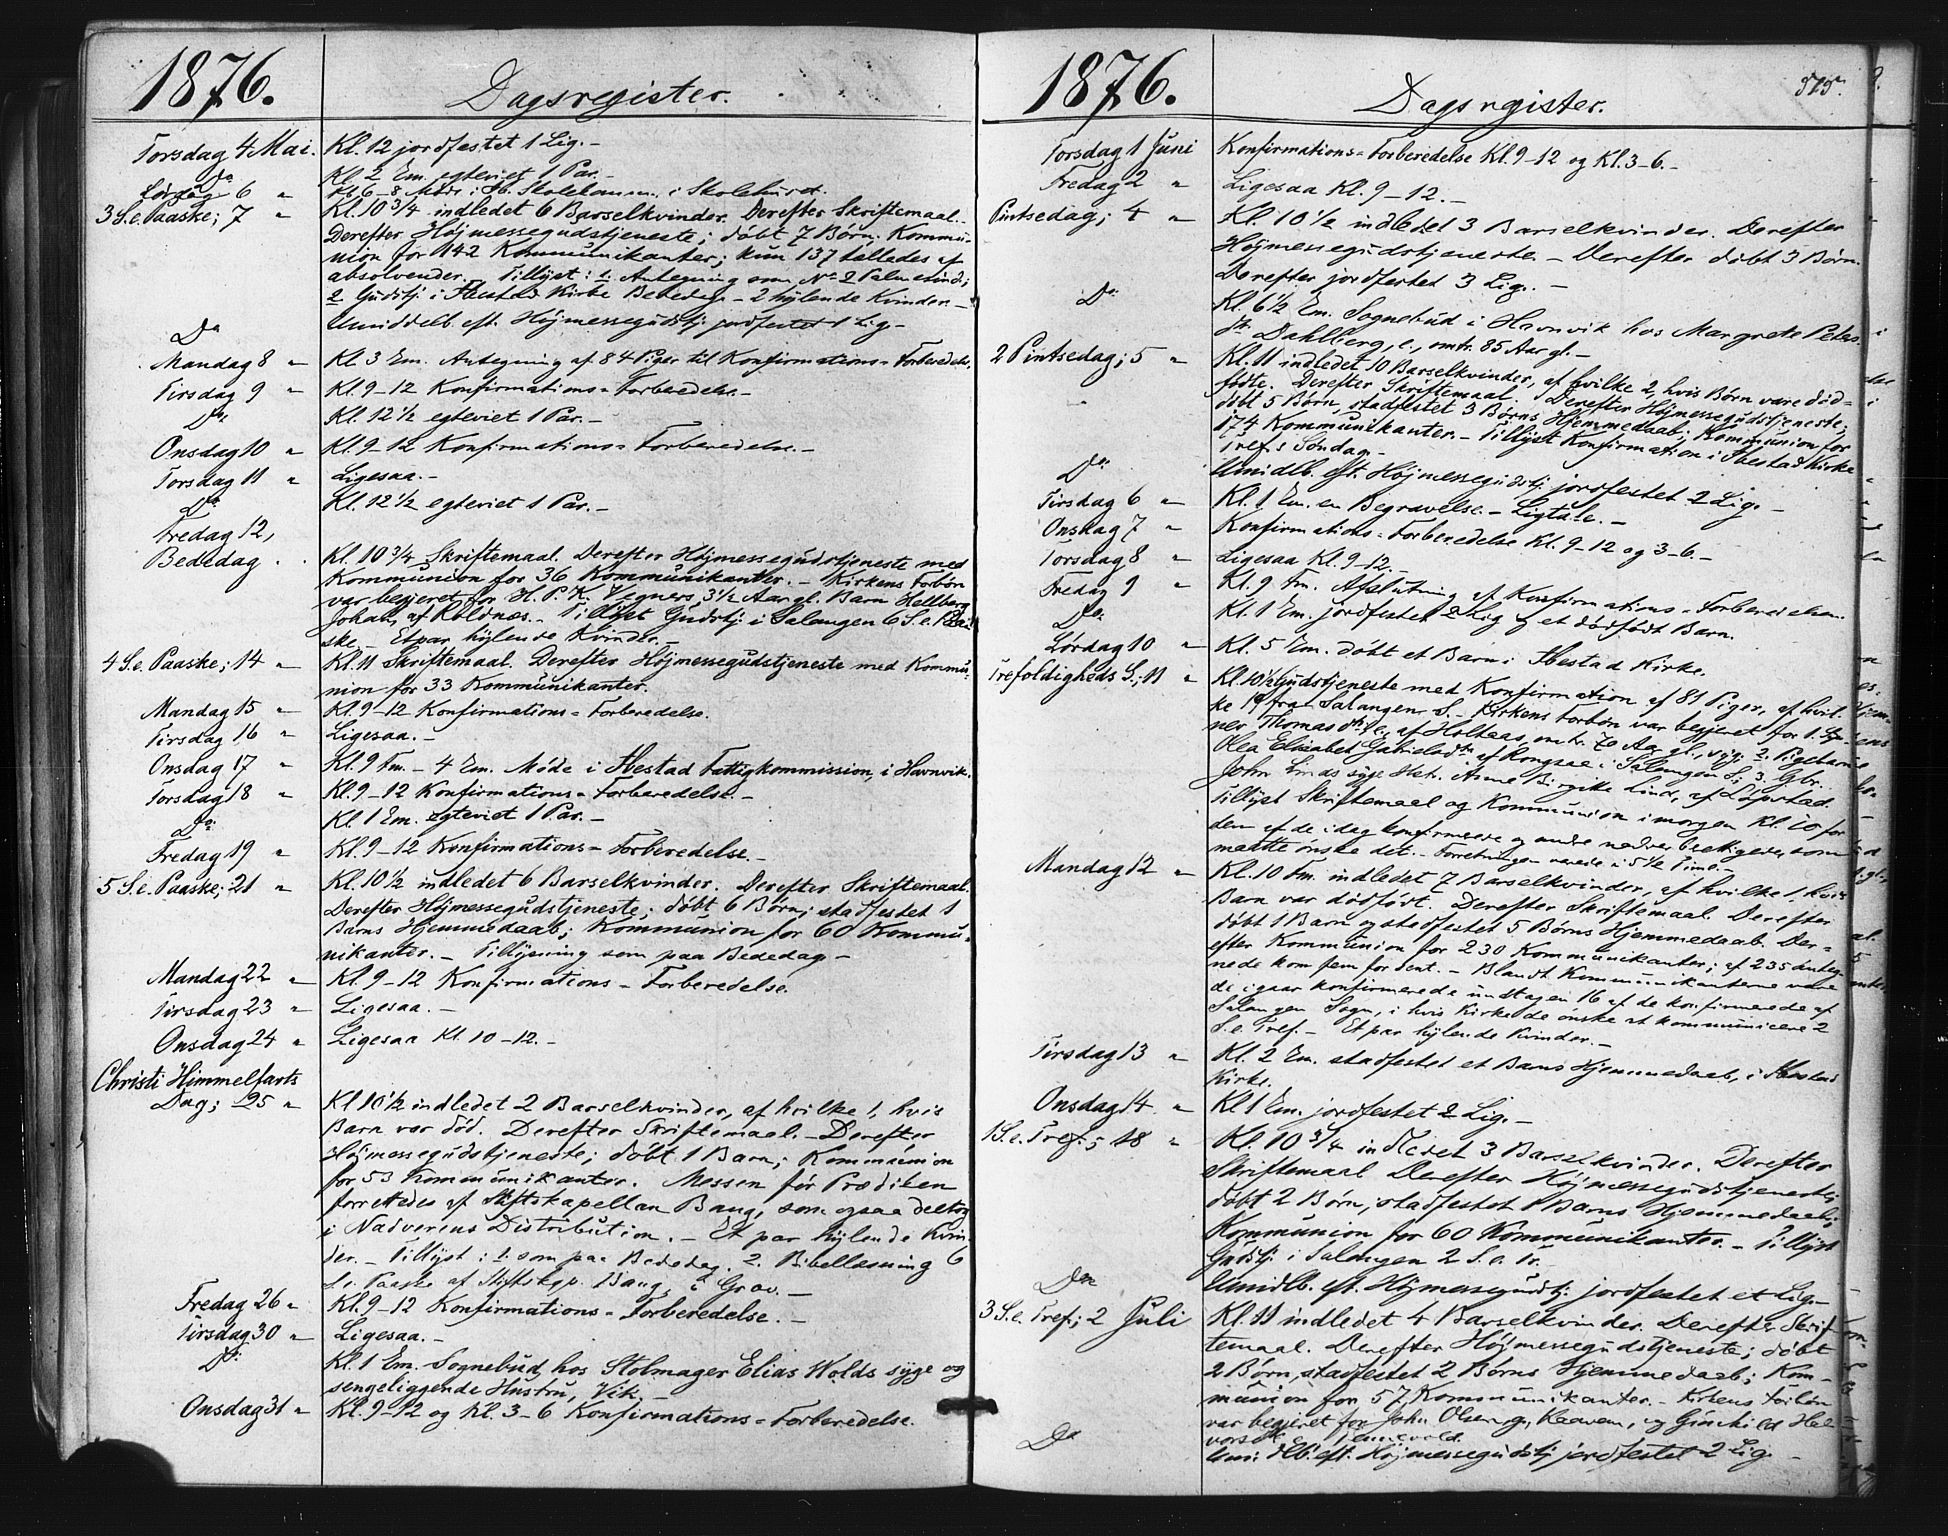 1876.
Dagsregister.
Torsdag 4 Mai. Kl. 12 jordfæstet 1 Lig. –
Do Kl. 2 Em. egteviet 1 Par. –
Lørdag 6 " Kl. 6–8 Møde i Skolehuset.
3 S. e. Paaske; 7 " Kl. 10 3/4 indledet 6 Barselkvinder. Derefter Skriftemaal.
Derefter Højmessegudstjeneste; døbt 7 Børn; Kommu-
nion for 142 Kommunikanter; kun 137 talledes af
absolvender. Tillyst: 1. Antegning som No 2 Palmesønd;
2 Gudstj. i Ibestad Kirke Bededag. – 2 hylende Kvinder. –
Do Umiddelb. eft. Højmessegudstj. jordfestet 1 Lig –
Mandag 8 " Kl. 3 Em. Antegning af 84 Piger til Konfirmations-Forberedelse.
Tirsdag 9 " Kl. 9–12 Konfirmations-Forberedelse. –
Do Kl. 12 1/2 egteviet 1 Par. –
Onsdag 10 " Kl. 9–12 Konfirmations-Forberedelse. –
Torsdag 11 " Ligesaa. –
Do Kl. 12 1/2 egteviet 1 Par. –
Fredag 12,
Bededag Kl. 10 3/4 Skriftemaal. Derefter Højmessegudstjeneste med
Kommunion for 36 Kommunikanter. – Kirkens Forbøn
var begjeret for H. P. K. Vegners 3 1/2 Aar gl. Barn Hellberg
Johan, af Roldnæs. – Tillyst Gudstj. i Salangen 6 S. e. Paa-
ske. – Et par hylende Kvinder. –
4 S. e. Paaske; 14 " Kl. 11 Skriftemaal. Derefter Højmessegudstjeneste med Kommu-
nion for 33 Kommunikanter.
Mandag 15 " Kl. 9–12 Konfirmations-Forberedelse.
Tirsdag 16 " Ligesaa. –
Onsdag 17 " Kl. 9 Fm. – 4 Em. Møde i Ibestad Fattigkommission, i Havnvik.
Torsdag 18 " Kl. 9–12 Konfirmations-Forberedelse. –
Do Kl. 1 Em. egteviet 1 Par. –
Fredag 19 " Kl. 9–12 Konfirmations-Forberedelse. –
5 S. e. Paaske; 21 " Kl. 10 1/2 indledet 6 Barselkvinder. Derefter Skriftemaal.
Derefter Højmessegudstjeneste; døbt 6 Børn; stadfestet 1
Barns Hjemmedaab; Kommunion for 60 Kommu-
nikanter. – Tillysning som paa Bededag –
Mandag 22 " Kl. 9–12 Konfirmations-Forberedelse.
Tirsdag 23 " Ligesaa. –
Onsdag 24 " Ligesaa Kl. 10–12. –
Christi Himmelfarts
Dag; 25 " Kl 10 1/2 indledet 2 Barselkvinder, af hvilke 1, hvis
Barn var død. Derefter Skriftemaal. – Derefter
Højmessegudstjeneste; døbt 1 Barn; Kommunion
for 53 Kommunikanter. Messen før Prædiken
forrettedes af Stiftskapellan Bang, som ogsaa deltog
i Nadverens Distribution. – Et par hylende Kvin-
der. – Tillyst: 1. som paa Bededag. 2. Bibellæsning 6
S. e. Paaske af Stiftskap. Bang, i Grov. –
Fredag 26 " Kl. 9–12 Konfirmations-Forberedelse. –
Tirsdag 30 " Ligesaa. –
Do Kl. 1 Em. Sognebud hos Stolmager Elias Wolds syge og
sengeliggende Hustru, Vik. –
Onsdag 31 " Kl. 9–12 og Kl. 3–6 Konfirmations-Forberedelse.
1876.
Dagsregister.
515.
Torsdag 1 Juni Konfirmations-Forberedelse Kl. 9–12 og Kl. 3–6. –
Fredag 2 " Ligesaa Kl. 9–12. –
Pintsedag; 4 " Kl. 10 1/2 indledet 3 Barselkvinder. Derefter
Højmessegudstjeneste. – Derefter døbt 3 Børn.
Derefter jordfestet 3 Lig. –
Do Kl. 6 1/2 Em. Sognebud i Havnvik hos Margrete Peters-
dtr Dahlberg, e., omtr. 85 Aar gl. –
2 Pintsedag; 5 " Kl. 11 indledet 10 Barselkvinder, af hvilke 2, hvis Børn vare død-
fødte. Derefter Skriftemaal. Derefter Højmessegudstjeneste;
døbt 5 Børn, stadfestet 3 Børns Hjemmedaab; Kommunion for
174 Kommunikanter. – Tillyst Konfirmation i Ibestad Kirke
Tref.s Søndag. –
Do Umidlb. eft. Højmessegudstj. jordfestet 2 Lig. –
Tirsdag 6 " Kl. 1 Em. en Begravelse. – Ligtale. –
Onsdag 7 " Konfirmations-Forberedelse Kl. 9–12 og 3–6. –
Torsdag 8 " Ligesaa Kl. 9–12. –
Fredag 9 " Kl. 9 Fm. Afslutning af Konfirmations-Forberedelsen.
Do Kl. 1 Em. jordfestet 2 Lig og et dødfødt Barn.
Lørdag 10 " Kl. 5 Em. døbt et Barn i Ibestad Kirke.
Trefoldigheds S.; 11 " Kl. 10 1/2 Gudstjeneste med Konfirmation af 81 Piger, af hvil-
ke 19 fra Salangen S. – Kirkens Forbøn var begjeret for 1.
Thomas af Holtaas, omtr. 70 Aar gl., syg; 2. Pigebarnet
Olea Elisabet Gabrielsdtr af Rongsae i Salangen S.; 3. Gbr.
John Linds syge Hstr. Anne Birgitte Lind, af Løpstad.
Tillyst Skriftemaal og Kommunion i morgen Kl. 10 for
dem af de idag konfirmerede og andre nadverberettigede, som
maatte ønske det. – Forretningen varede i 5 1/2 Time. –
Mandag 12 " Kl. 10 Fm. indledet 7 Barselkvinder, af hvilke 1, hvis
Barn var dødfødt. Derefter Skriftemaal. Derefter
døbt 1 Barn og stadfestet 5 Børns Hjemmedaab. Der-
efter Kommunion for 230 Kommunikanter; af 235 anteg-
nede kom fem for sent. – Blandt Kommunikanterne vare
de igaar konfirmerede undtagen 16 af de konfirmerede af
Salangen Sogn, i hvis Kirke de ønske at kommunicere 2
S. e. Tref. – Et par hylende Kvinder. –
Tirsdag 13 " Kl. 2 Em. stadfestet et Barns Hjemmedaab, i Ibestad
Kirke.
Onsdag 14 " Kl 1 Em. jordfestet 2 Lig. –
1 S. e. Tref.; 18 " Kl. 10 3/4 indledet 3 Barselkvinder. Derefter
Skriftemaal Derefter Højmessegudstjeneste;
døbt 2 Børn, stadfestet 1 Barns Hjemmedaab;
Kommunion for 60 Kommunikanter. – Tillyst
Gudstj. i Salangen 2 S. e. Tr. –
Do Umidlb. eft. Højmessegudstj. jordfestet et Lig. –
3 S. e. Tref.; 2 Juli Kl. 11 indledet 4 Barselkvinder. Derefter Skrif-
temaal. Derefter Højmessegudstjeneste; døbt
2 Børn, stadfestet 2 Børns Hjemmedaab; Kom-
munion for 57 Kommunikanter. – Kirkens Forbøn
var begjeret for John Olsen, og Gunhild Hal-
vorsdtr
Do Umidlb. eft. Højmessegudstj. jordfestet 2 Lig. –